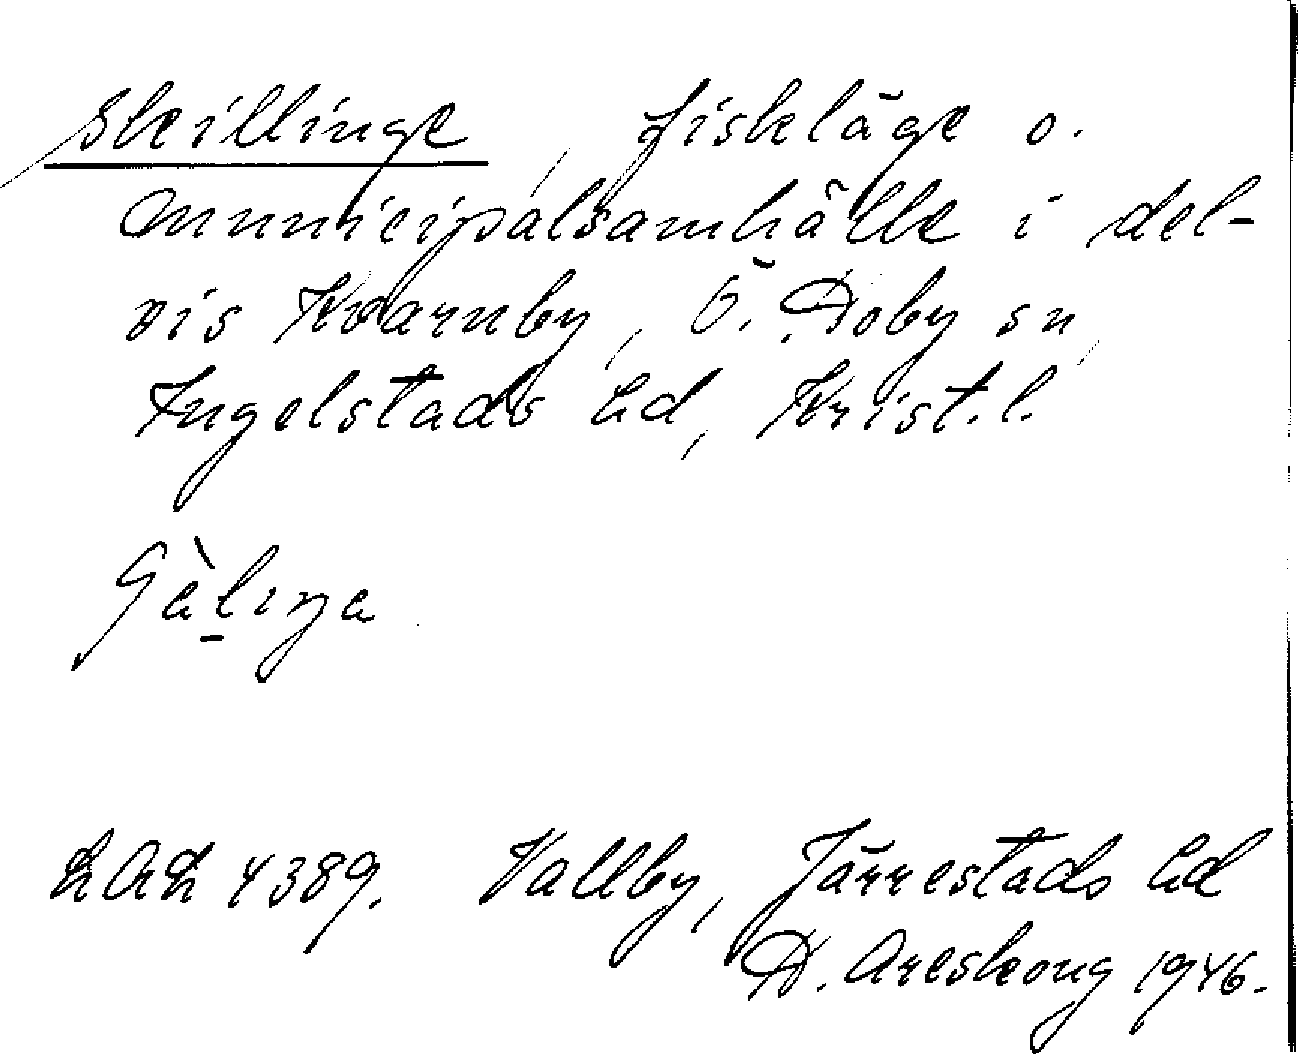 Skillinge, fiskläge o.
municipalsamhälle i del-
vis Kvarnby, Ö. Hoby sn,
Ingelstads hd, Krist.l.
LAL 4389. Vallby, Järrestads hd
H. Areskoug 1946.